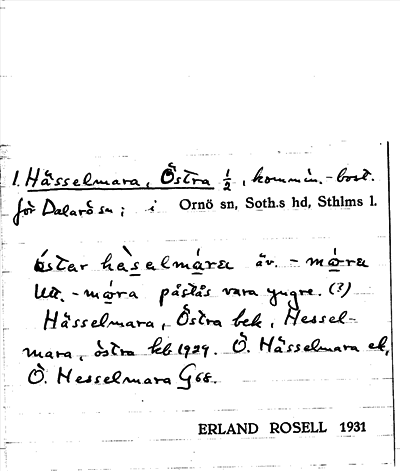 1. Hässelmara, Östra ½, kommin.-bost.
för Dalarö sn; i Ornö sn, Soth.s hd, Sthlms l.
östar hàsalmára äv. -mára
Utt. -mára påstås vara yngre. (?)
Hässelmara, Östra bek, Hessel-
mara, östra kb 1929. Ö. Hässelmara ek,
Ö. Hesselmara G68.
ERLAND ROSELL 1931